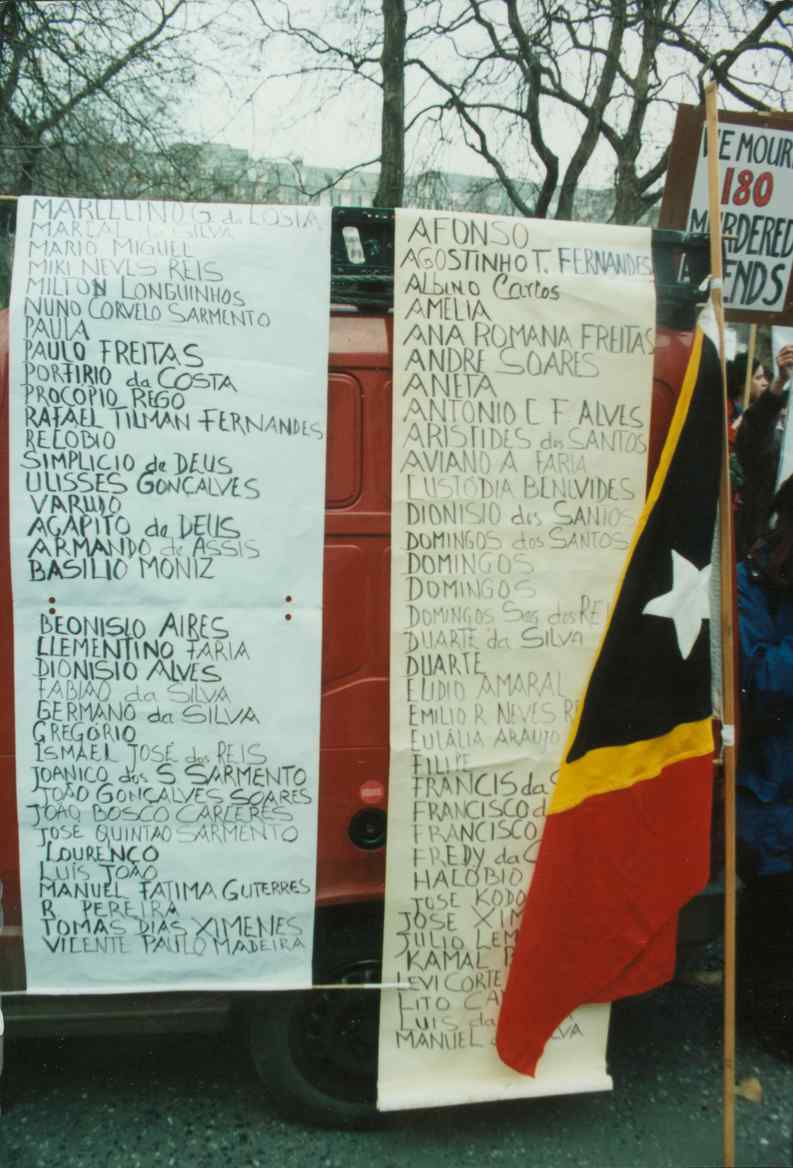 MARCELINO G. da COSTA
MARCAL da SILVA
MARIO MIGUEL
MIKI NEVES REIS
MILTON LONGUINHOS
NUNO CORVELO SARMENTO
PAULA
PAULO FREITAS
PORFIRIO da COSTA
PROCOPIO REGO
RAFAEL TILMAN FERNANDES
RELOBIO
SIMPLICIO de DEUS
ULISSES GONÇALVES
AGAPITO de DEUS
ARMANDO de ASSIS
BASILIO MONIZ
BEONISIO AIRES
CLEMENTINO FARIA
DIONISIO ALVES
FABIAO da SILVA
GERMANO da SILVA
GREGÓRIO
ISMAEL JOSÉ dos REIS
JOANICO dos S SARMENTO
JOÃO GONÇALVES SOARES
JOAO BOSCO CARCERES
JOSE QUINTAO SARMENTO
LOURENCO
LUÍS JOÃO
MANUEL FATIMA GUTERRES
R. PEREIRA
TOMAS DIAS XIMENES
VICENTE PAULO MADEIRA
AFONSO
AGOSTINHO T. FERNANDES
ALBINO Carlos
AMELIA
ANA ROMANA FREITAS
ANDRE SOARES
ANETA
ANTONIO C F ALVES
ARISTIDES dos SANTOS
AVIANO A FARIA
CUSTÓDIA BENEVIDES
DIONISIO dos SANTOS
DOMINGOS dos SANTOS
DOMINGOS
DOMINGOS
DOMINGOS Seg dos REI
DUARTE da SILVA
DUARTE
ELIDIO AMARAL
EMILIO R NEVES R
EULÁLIA ARAUJO
FILIPE
FRANCIS da
FRANCISCO d
FRANCISCO
FREDY da C
HALOBIO
JOSE KODO
JOSE XIM
JULIO LEM
KAMAL
LEVI CORTE
LITO CA
LUIS da
MANUEL LVA
WE MOURN
180
MURDERED
ENDS